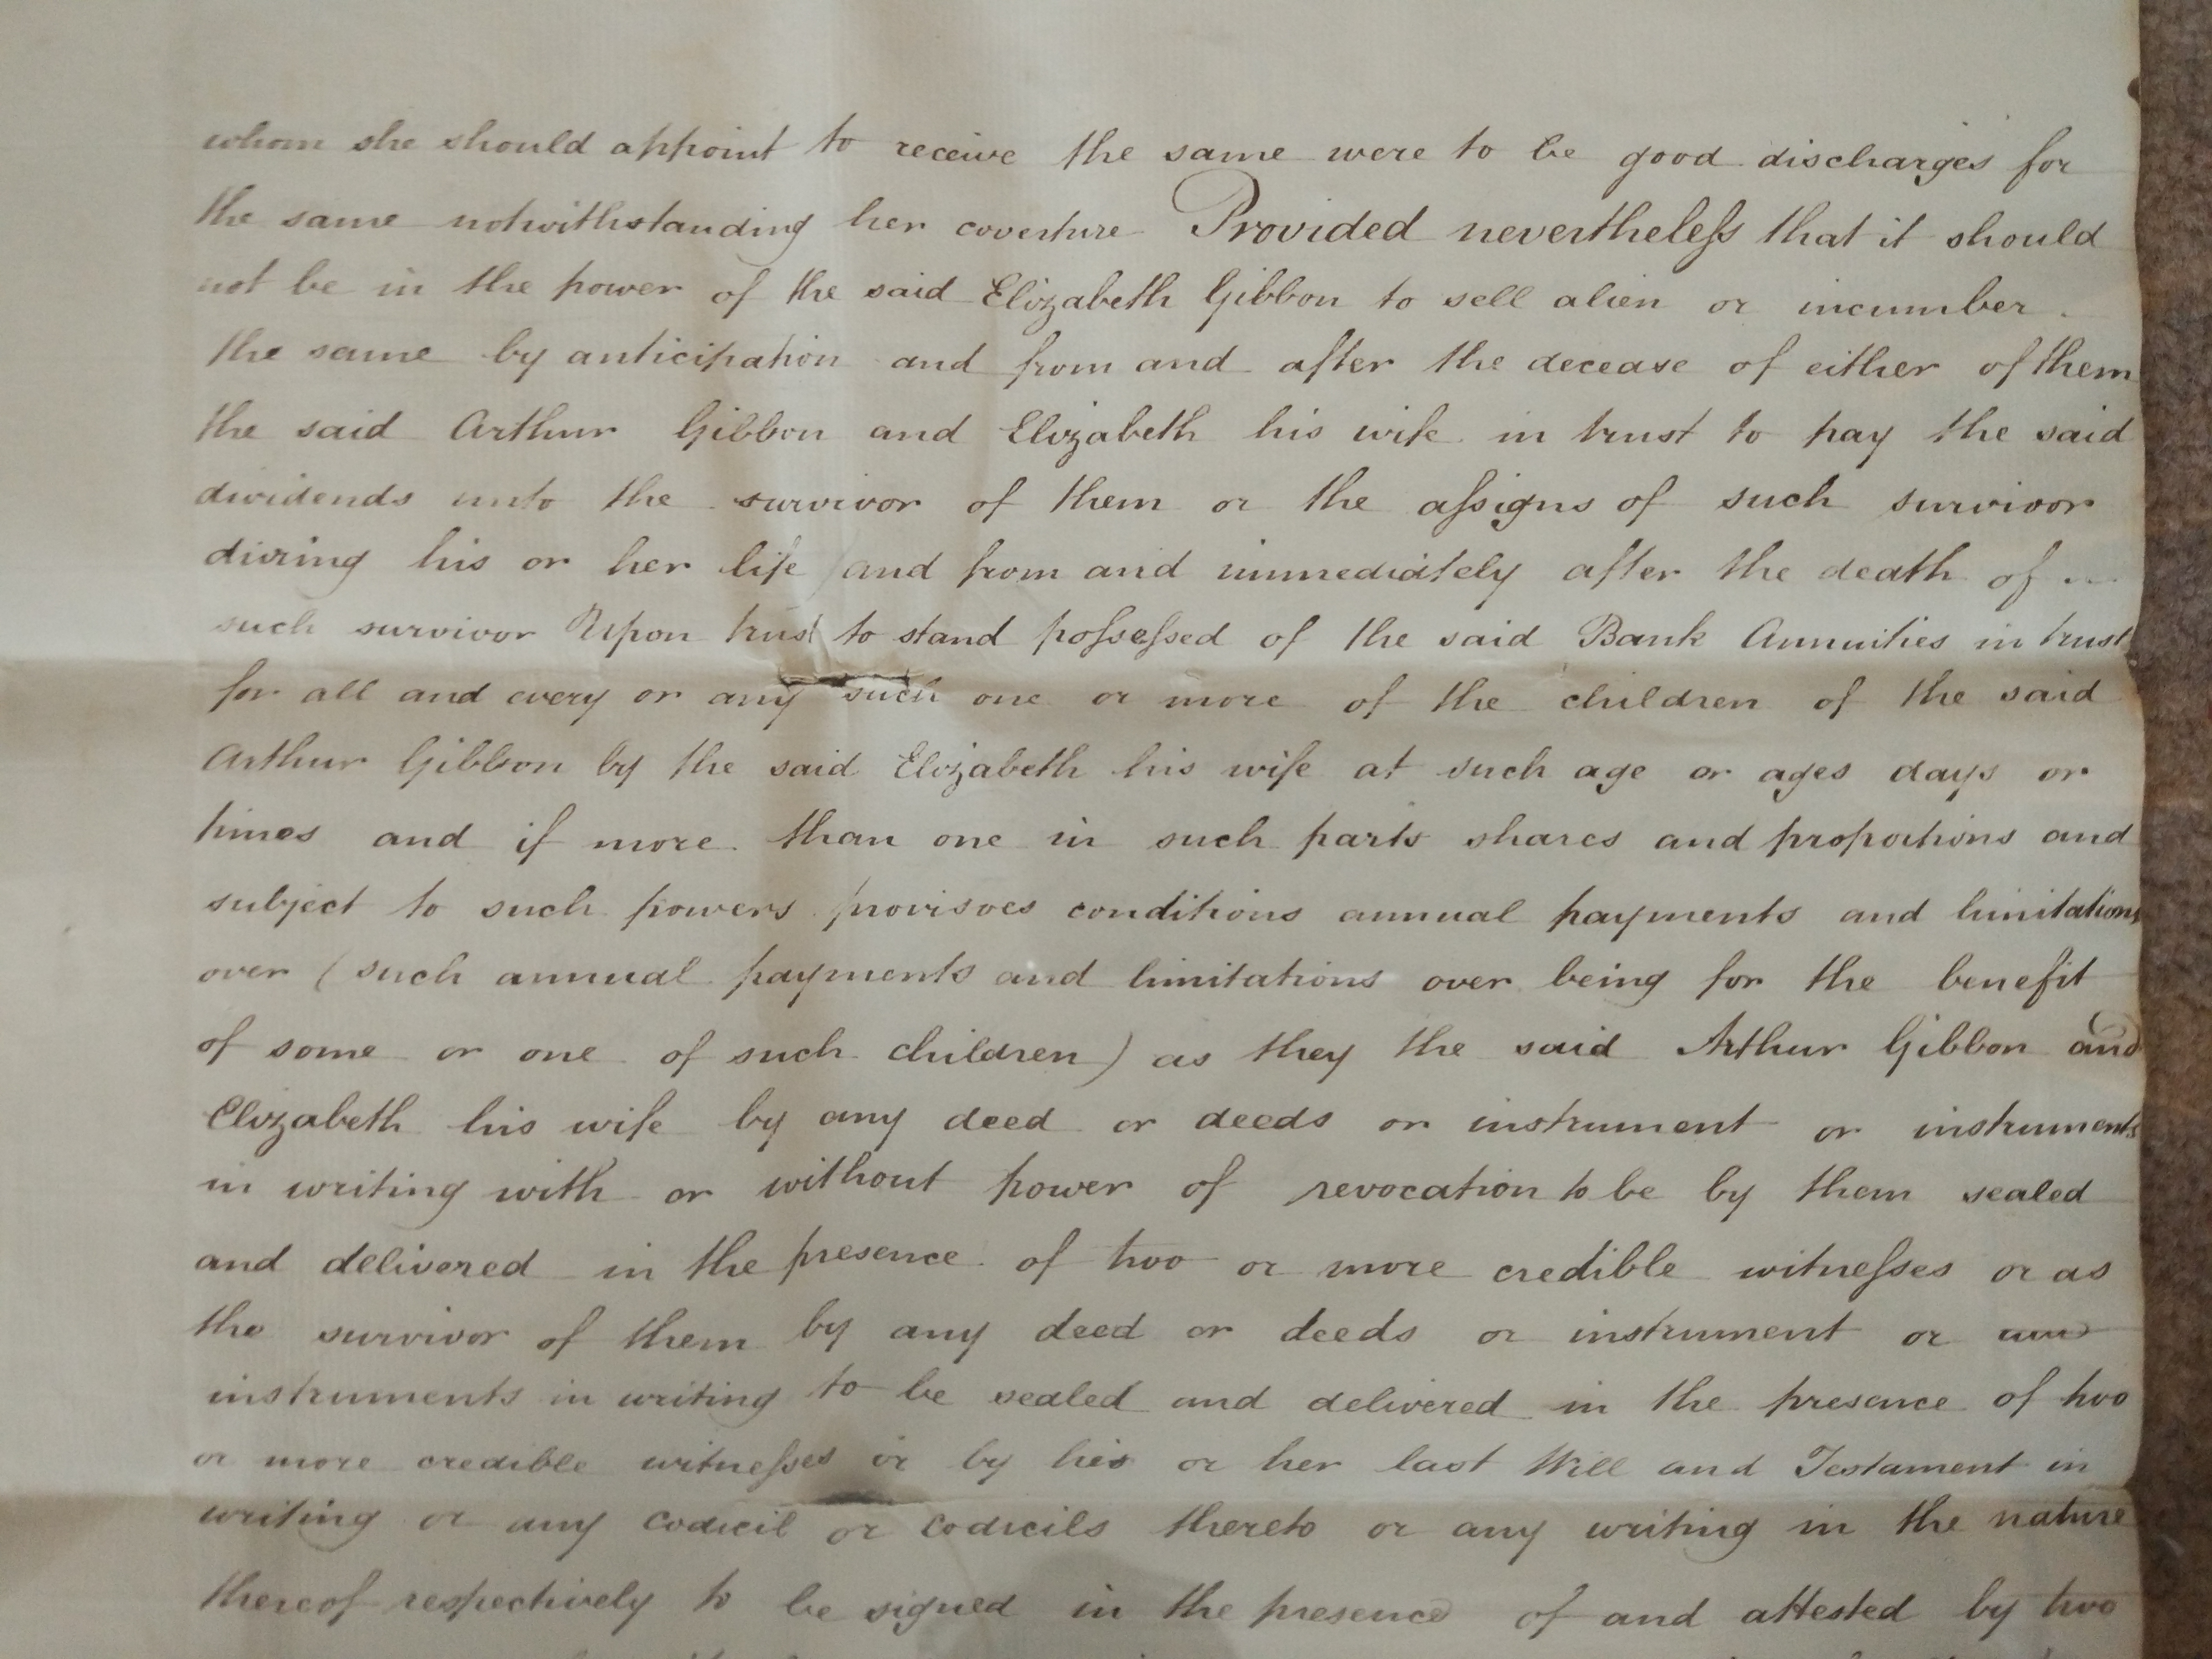 whom she should appoint to receive the same were to be good discharges for
the same notwithstanding her coverture Provided nevertheleſs that it should
not be in the power of the said Elizabeth Gibbon to sell alien or incumber
the same by anticipation and from and after the decease of either of them
the said Arthur Gibbon and Elizabeth his wife in trust to pay the said
dividends unto the survivor of them or the aſsigns of such survivor
during his or her life and from and immediately after the death of
such survivor Upon trust to stand poſseſsed of the said Bank Annuities in trust
for all and every or any such one or more of the children of the said
Arthur Gibbon by the said Elizabeth his wife at such age or ages days or
times and if more than one in such parts shares and proportions and
subject to such powers provisoes conditions annual payments and limitations
over (such annual payments and limitations over being for the benefit
of some or one of such children) as they the said Arthur Gibbon and
Elizabeth his wife by any deed or deeds or instrument or instruments
in writing with or without power of revocation to be by them sealed
and delivered in the presence of two or more credible witneſses or as
the survivor of them by any deed or deeds or instrument or
instruments in writing to be sealed and delivered in the presence of two
or more credible witneſses or by his or her last Will and Testament in
writing or any codicil or codicils thereto or any writing in the nature
thereof respectively to be signed in the presence of and attested by two